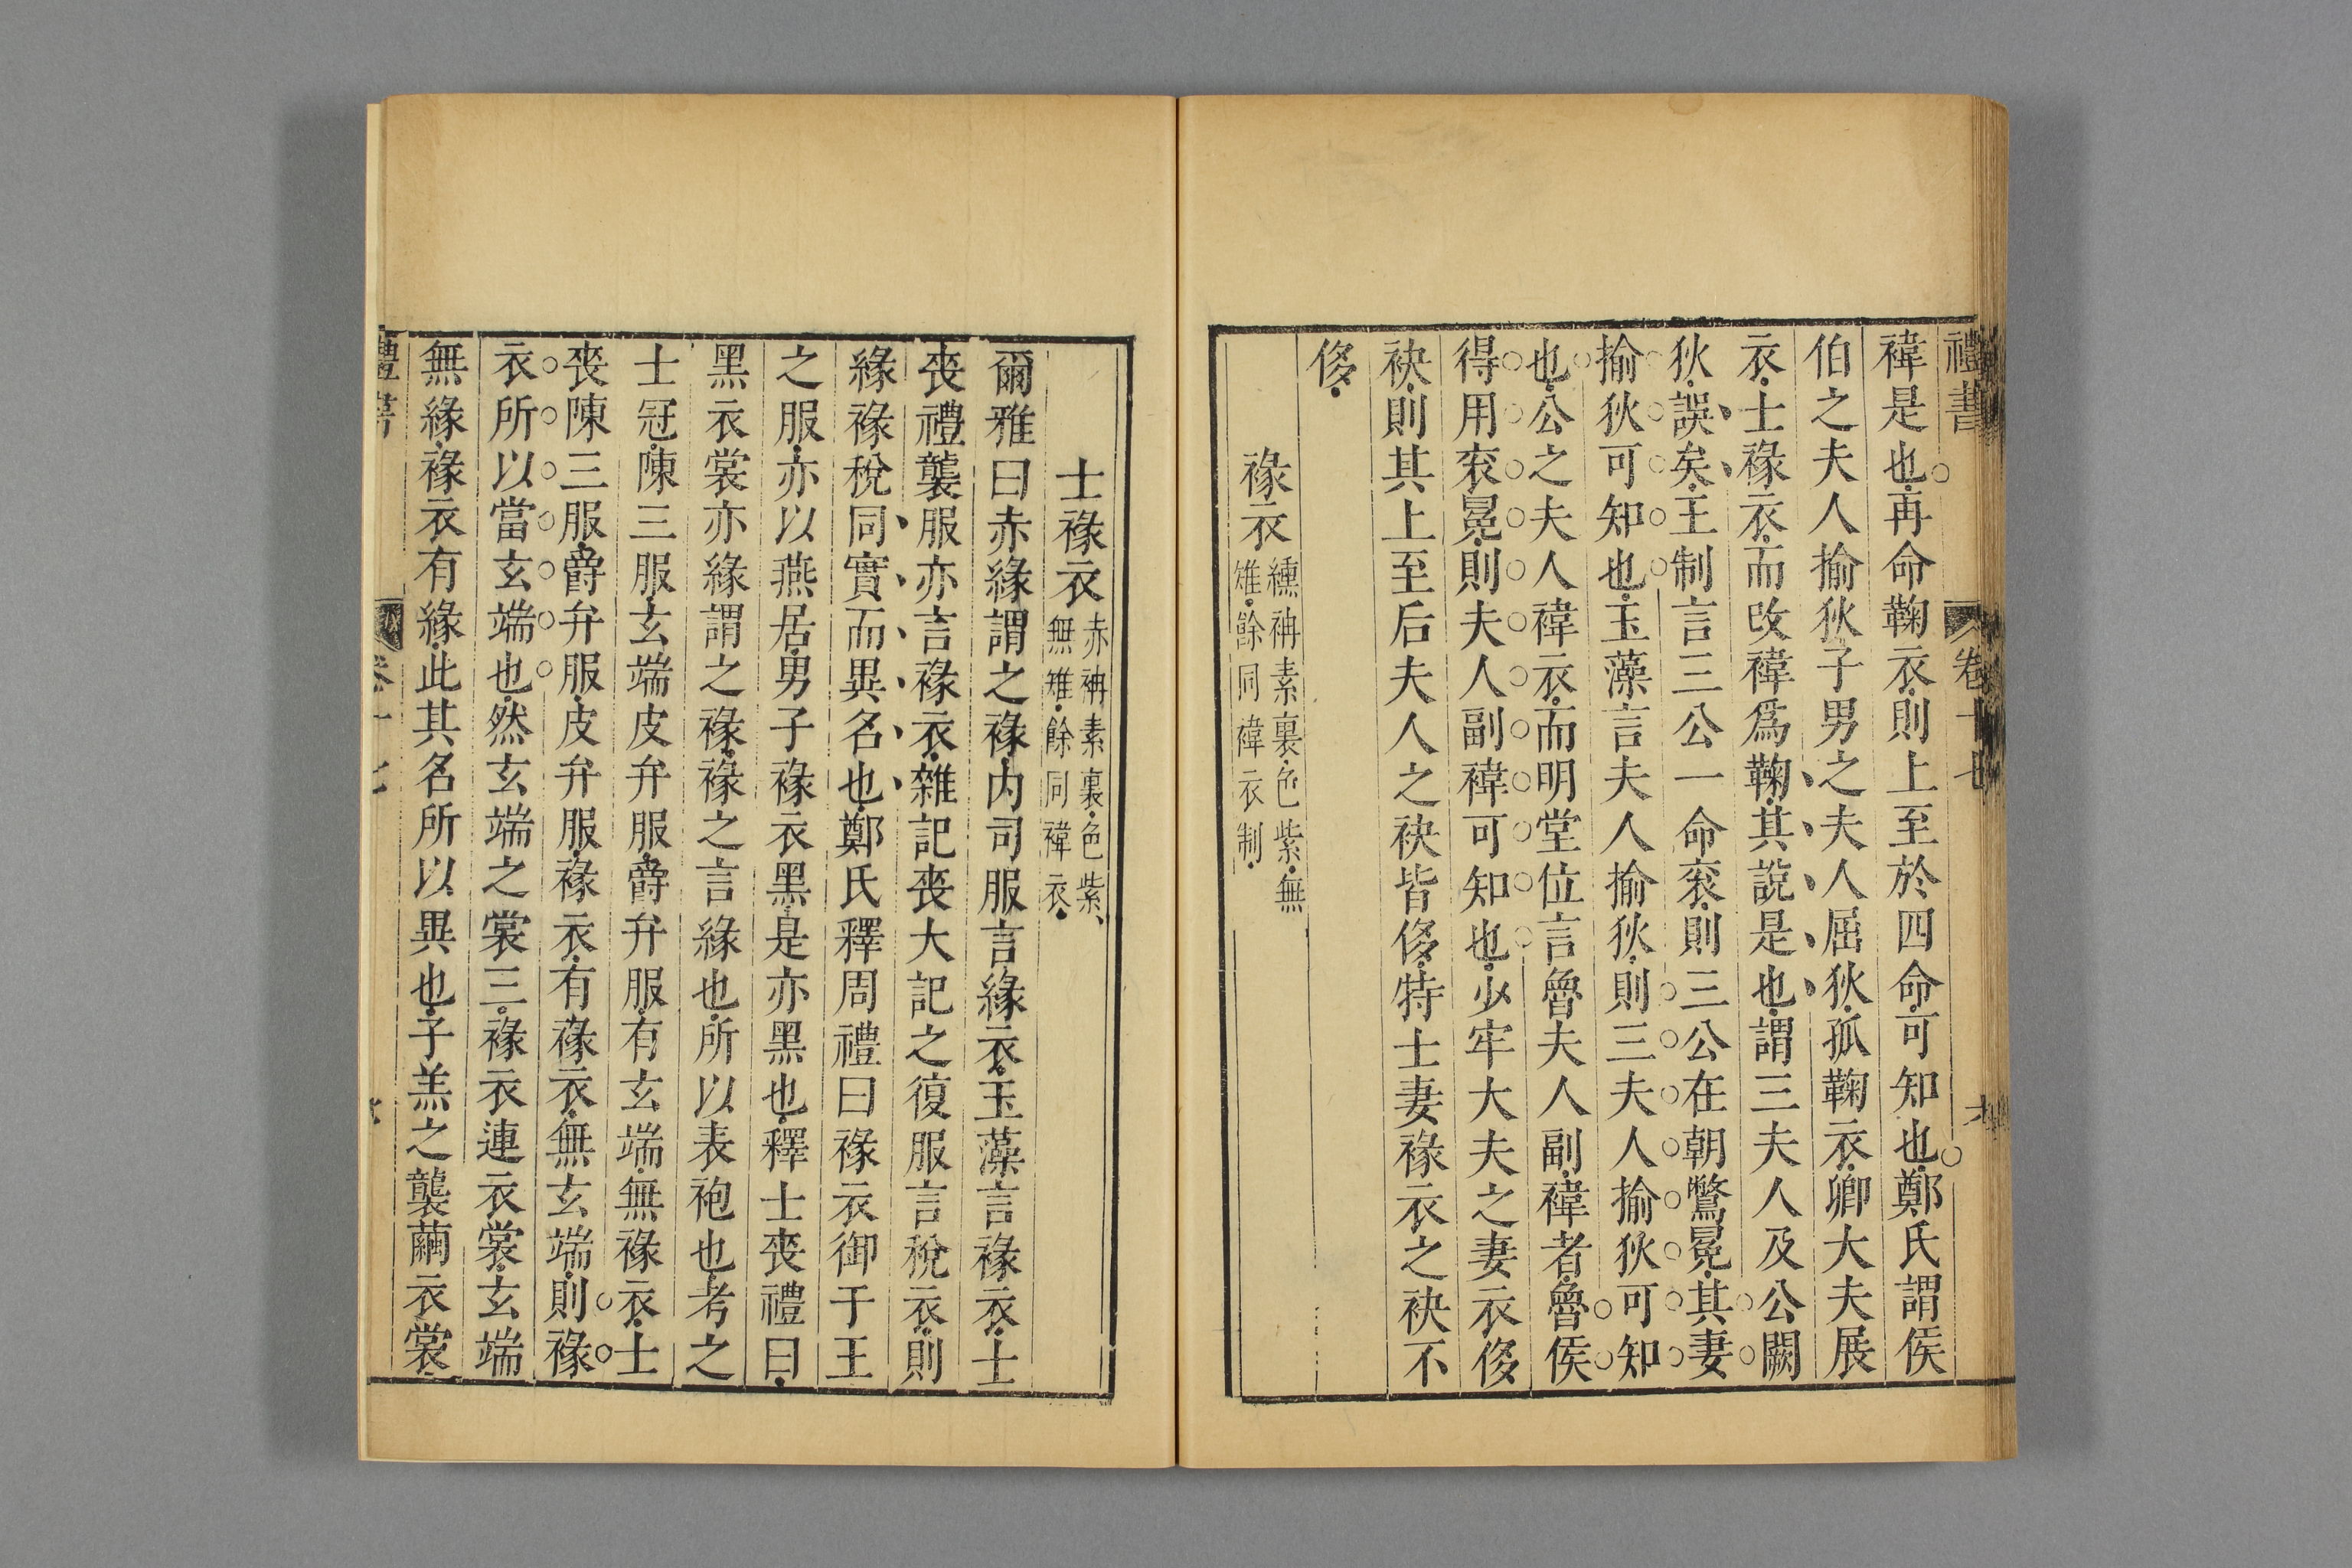 禮書 卷十七
褘是也再命鞠衣則上至於四命可知也鄭氏謂侯
伯之夫人揄狄子男之夫人屈狄孤鞠衣卿大夫展
衣士褖衣而改褘爲鞠其說是也謂三夫人及公闕
狄誤矣王制言三公一命衮則三公在朝鷩冕其妻
揄狄可知也玉藻言夫人揄狄則三夫人揄狄可知
也公之夫人褘衣而明堂位言魯夫人副褘者魯侯
得用衮冕則夫人副褘可知也少牢大夫之妻衣侈
袂則其上至后夫人之袂皆侈特士妻褖衣之袂不
侈
褖衣 纁袡素裏色紫無
雉餘同褘衣制
士褖衣 赤袡素裏色紫
無雉餘同褘衣
爾雅曰赤緣謂之褖内司服言緣衣玉藻言褖衣士
喪禮襲服亦言褖衣雜記喪大記之復服言稅衣則
緣褖稅同實而異名也鄭氏釋周禮曰褖衣御于王
之服亦以燕居男子褖衣黑是亦黑也釋士喪禮曰
黑衣裳亦緣謂之褖褖之言緣也所以表袍也考之
士冠陳三服玄端皮弁服爵弁服有玄端無褖衣士
喪陳三服爵弁服皮弁服褖衣有褖衣無玄端則褖
衣所以當玄端也然玄端之裳三褖衣連衣裳玄端
無緣褖衣有緣此其名所以異也子羔之襲繭衣裳
禮書